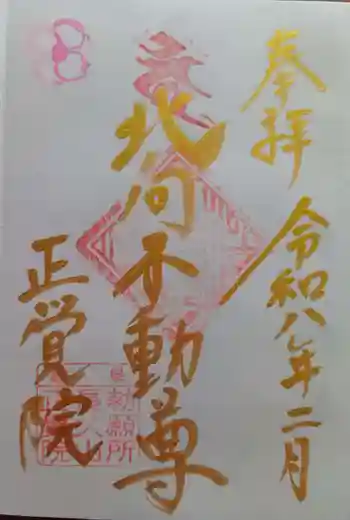 奉拝
令和八年二月
北向不動尊
正覚院
勅願所